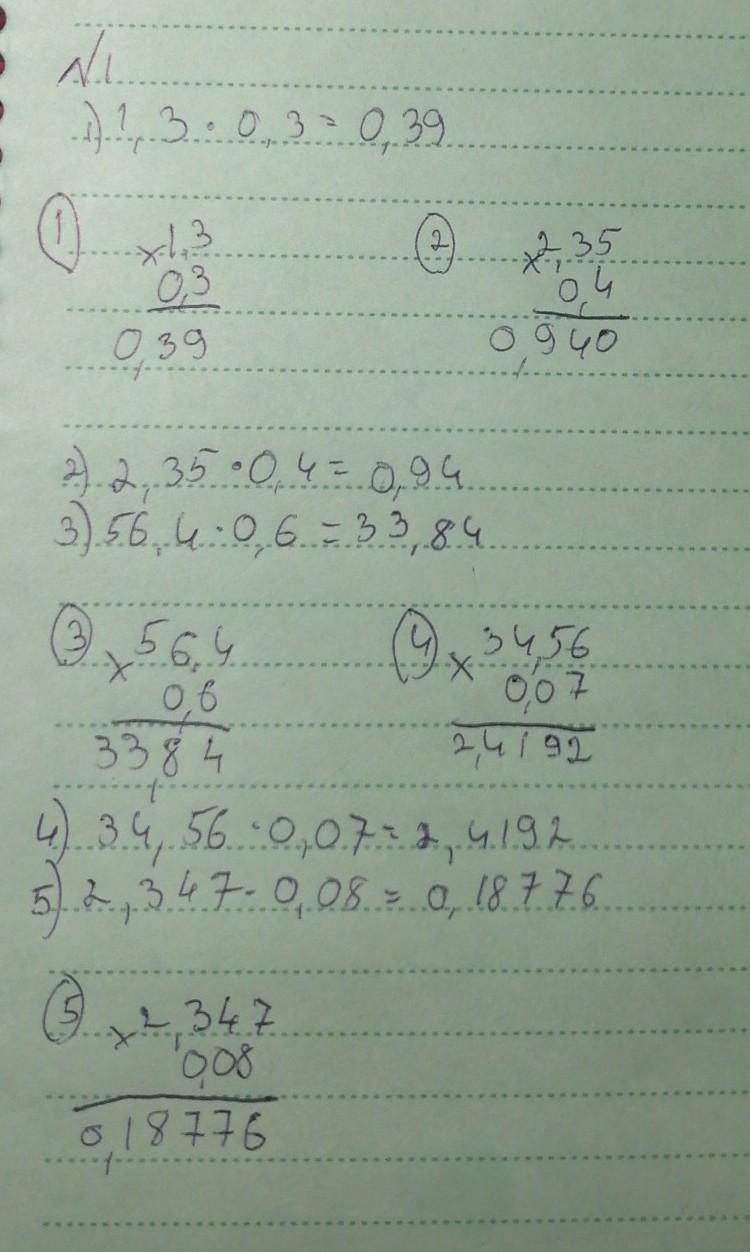 №1
1) 1,3 · 0,3 = 0,39
① × 1,3
0,3
0,39
② × 2,35
0,4
0,940
2) 2,35 · 0,4 = 0,94
3) 56,4 · 0,6 = 33,84
③ × 56,4
0,6
33,84
④ × 34,56
0,07
2,4192
4) 34,56 · 0,07 = 2,4192
5) 2,347 · 0,08 = 0,18776
⑤ × 2,347
0,08
0,18776